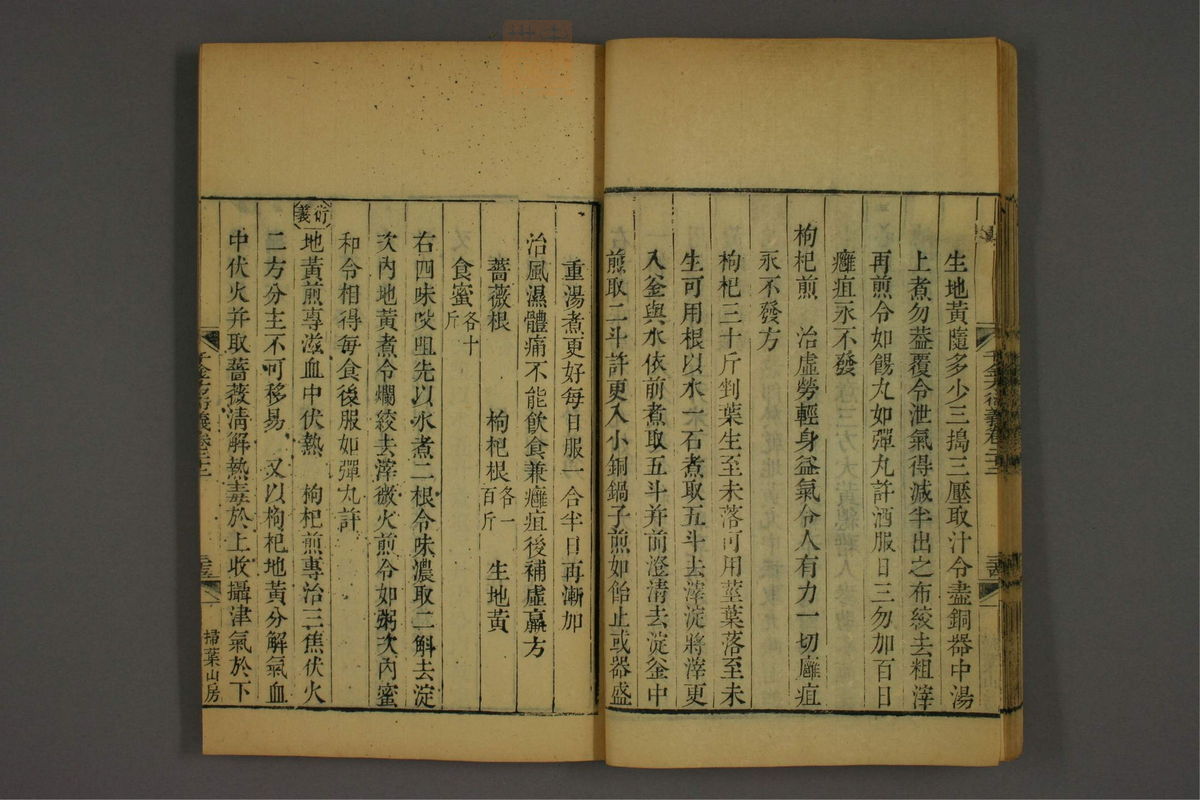 生地黃隨多少三搗三壓取汁令盡銅器中湯
上煮勿葢覆令泄氣得減半出之布絞去粗滓
再煎令如餳丸如彈丸許酒服日三勿加百日
癰疽永不發
枸杞煎　治虛勞輕身益氣令人有力一切癰疽
永不發方
枸杞三十斤剉葉生至未落可用莖葉落至未
生可用根以水一石煮取五斗去滓淀將滓更
入釜與水依前煮取五斗并前澄清去淀釜中
煎取二斗許更入小銅鍋子煎如飴止或器盛
重湯煮更好每日服一合半日再漸加
治風濕體痛不能飲食兼癰疽後補虛羸方
薔薇根　枸杞根各一百斤　生地黃
食蜜各十斤
右四味㕮咀先以水煮二根令味濃取二斛去淀
次內地黃煮令爛絞去滓微火煎令如粥次內蜜
和令相得每食後服如彈丸許
衍義
地黃煎專滋血中伏熱　枸杞煎專治三焦伏火
二方分主不可移易　又以枸杞地黃分解氣血
中伏火并取薔薇清解熱毒於上收攝津氣於下
千金方衍義卷二十二
掃葉山房